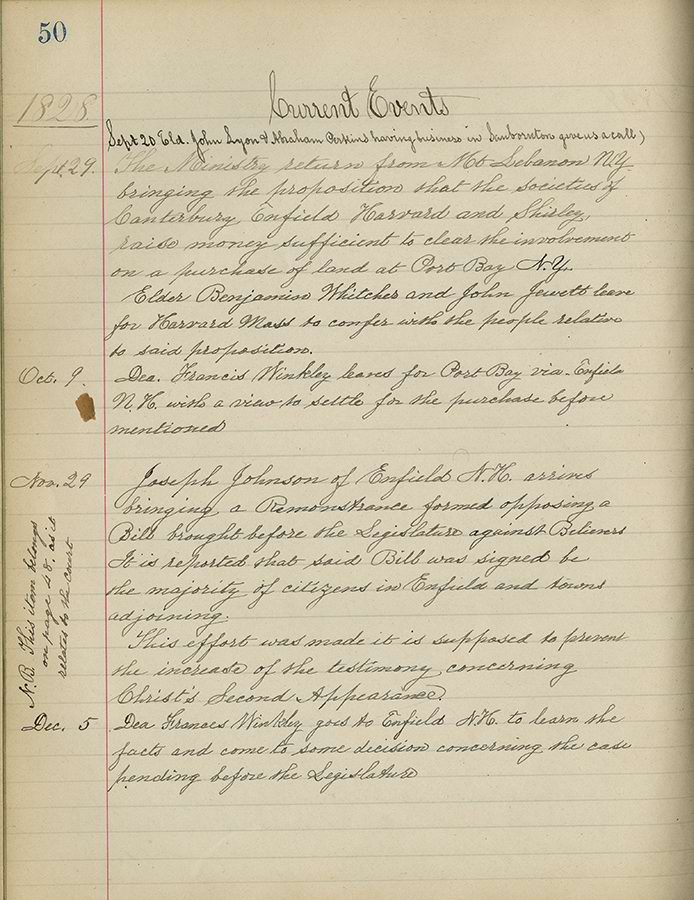 50
1828
Current Events
Sept 20 Eld. John Lyon & Abraham Perkins having business in Sanbornton give us a call)
Sept. 29. The Ministry return from Mt Lebanon N.Y.
bringing the proposition that the societies of
Canterbury, Enfield Harvard and Shirley,
raise money sufficient to clear the involvement
on a purchase of land at Port Bay N.Y.
Elder Benjamin Whitcher and John Jewett leave
for Harvard Mass to confer with the people relative
to said proposition.
Oct. 9. Dea. Francis Winkley leaves for Port Bay via. Enfield
N.H. with a view to settle for the purchase before
mentioned
Nov. 29 Joseph Johnson of Enfield N.H. arrives
bringing a Remonstrance formed opposing a
Bill brought before the Legislature against Believers
It is reported that said Bill was signed be
the majority of citizens in Enfield and towns
adjoining.
This effort was made it is supposed to prevent
the increase of the testimony concerning
Christ's Second Appearance.
N.B. This item belongs
on page as it
relates to the court
Dec. 5 Dea Frances Winkley goes to Enfield N.H. to learn the
facts and come to some decision concerning the case
pending before the Legislature